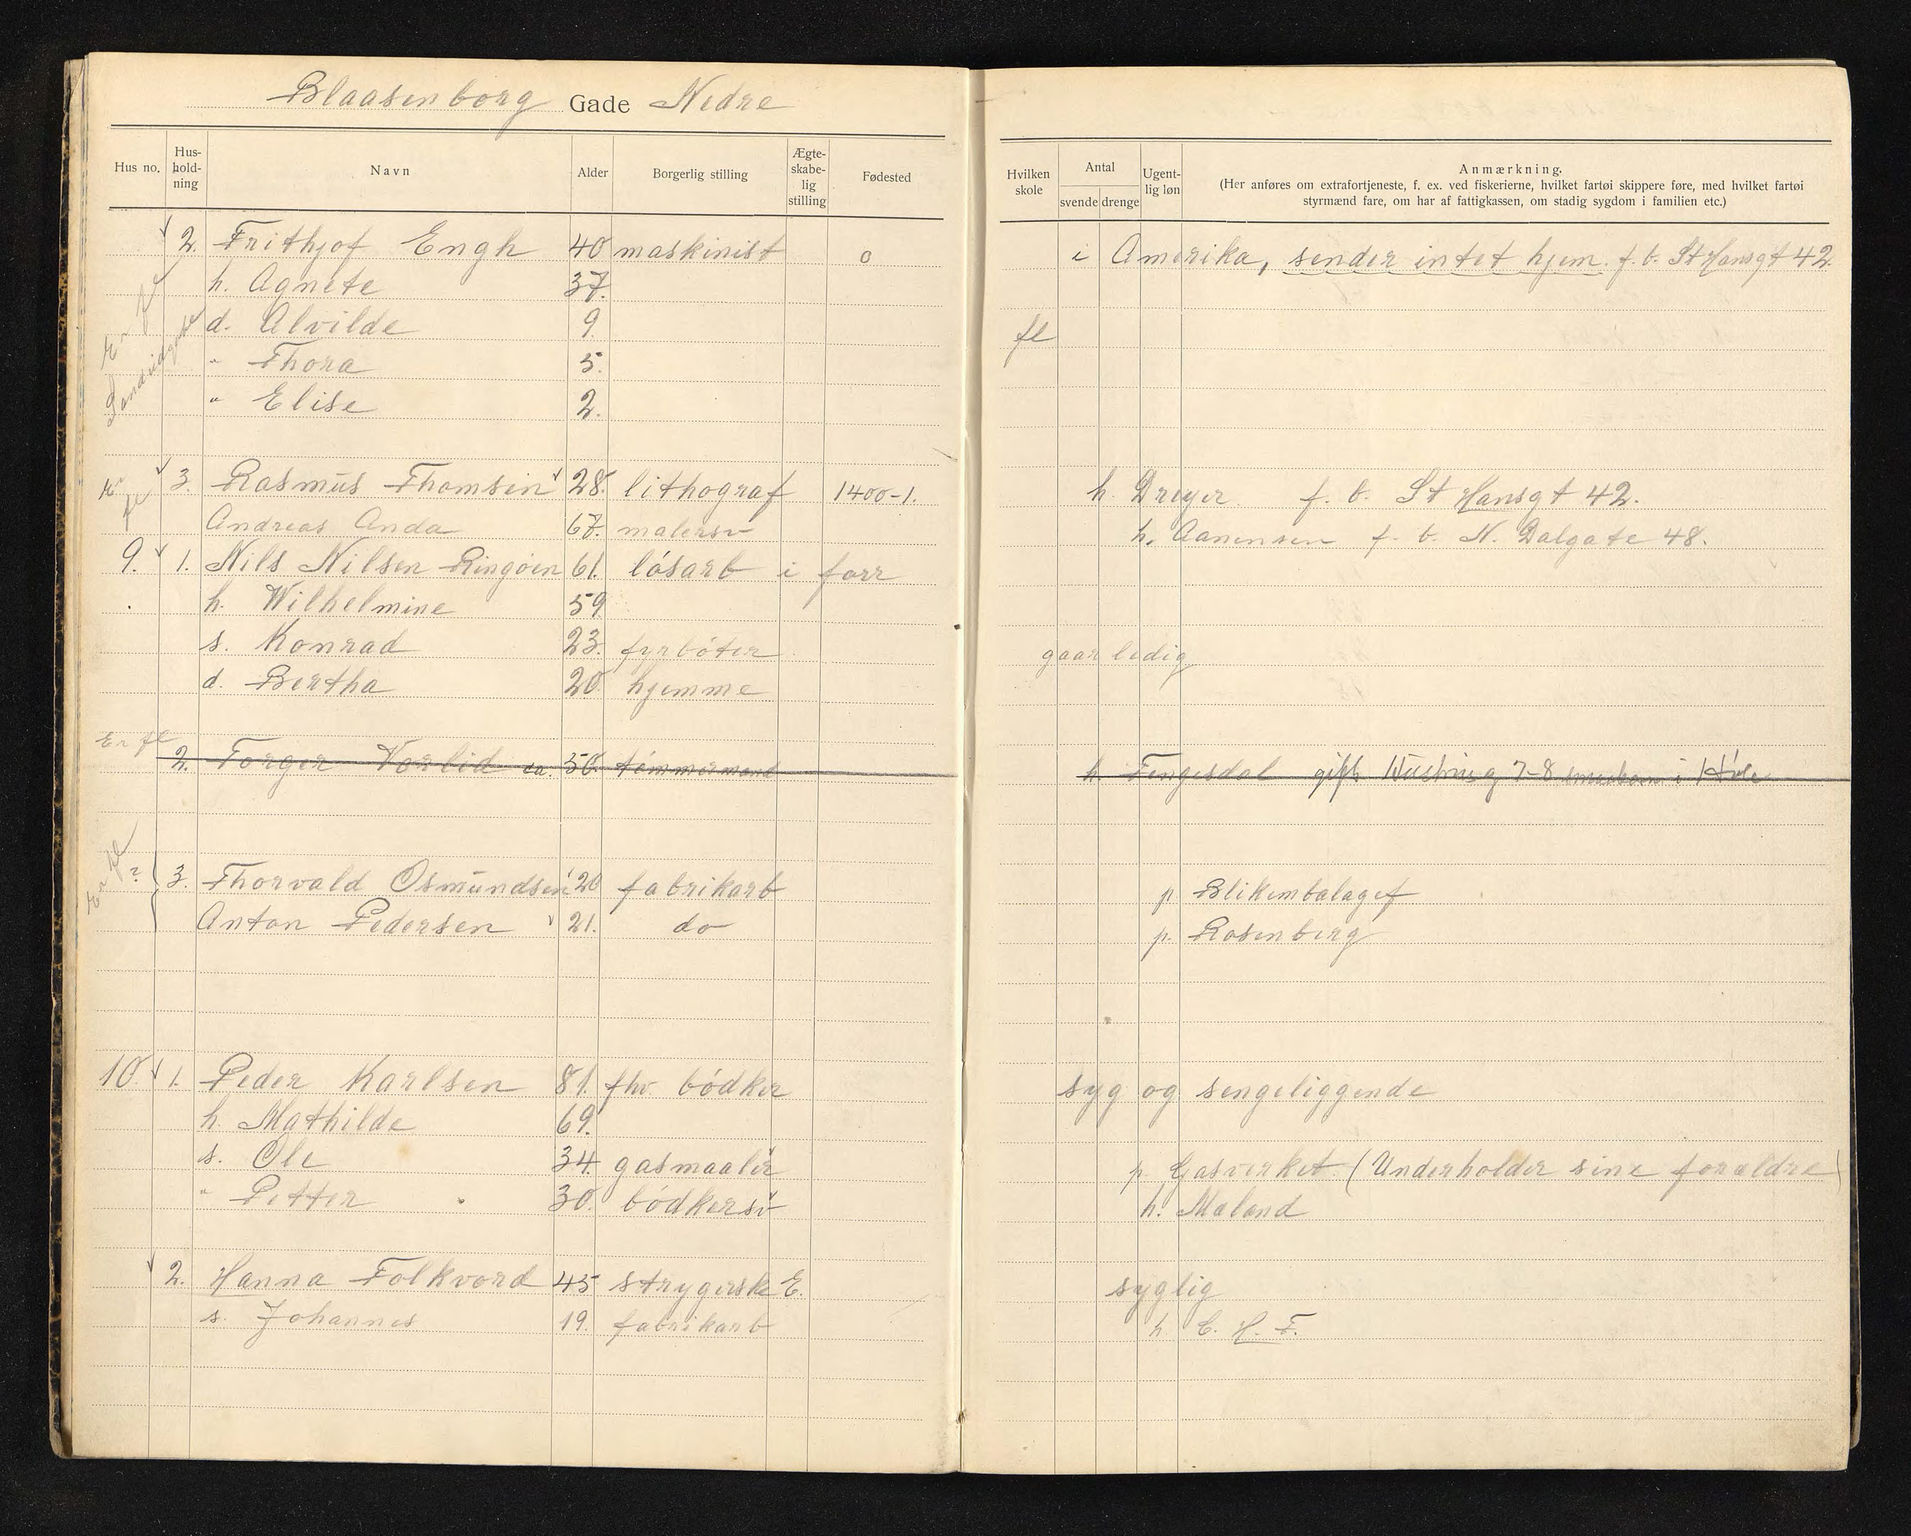 Blaasenborg Gade Nedre
Hus no. Hus-hold-ning Navn Alder Borgerlig stilling Ægte-skabe-lig stilling Fødested Hvilken skole Antal svende drenge Ugent-lig løn Anmærkning.
(Her anføres om extrafortjeneste, f. ex. ved fiskerierne, hvilket fartøi skippere føre, med hvilket fartøi
styrmænd fare, om har af fattigkassen, om stadig sygdom i familien etc.)
2. Frithjof Engh 40 maskinist o i Amerika, sender intet hjem. f. b. St Hansgt 42.
h. Agnete 37.
Er fl
d. Alvilde 9. fl
" Thora 5.
" Elise 2.
Er fl
3. Rasmus Thomsen 28. lithograf 1400-1. h. Dreyer f. b. St Hansgt 42.
Andreas Anda 67. malersv h. Aanensen f. b. N. Dalgate 48.
9. 1. Nils Nilsen Ringøen 61. løsarb i forr
h. Wilhelmine 59
s. Konrad 23. fyrbøter gaar ledig
d. Bertha 20 hjemme
Er fl
2. Torger Vorlid ca. 50. tømmermand h. Tengesdal gift Hustru og 7-8 smaabørn i Høle
Er fl ?
3. Thorvald Osmundsen 20 fabrikarb p. Blikemballagef
Anton Pedersen 21. do p. Rosenberg
10. 1. Peder Karlsen 81. fhv. bødker syg og sengeliggende
h. Mathilde 69.
s. Ole 34. gasmaaler p. Gasverket (Underholder sine forældre)
" Petter 30. bødkersv h. Maland
2. Hanna Folkvord 45 strygerske E. syglig
s. Johannes 19. fabrikarb h. C. H. F.